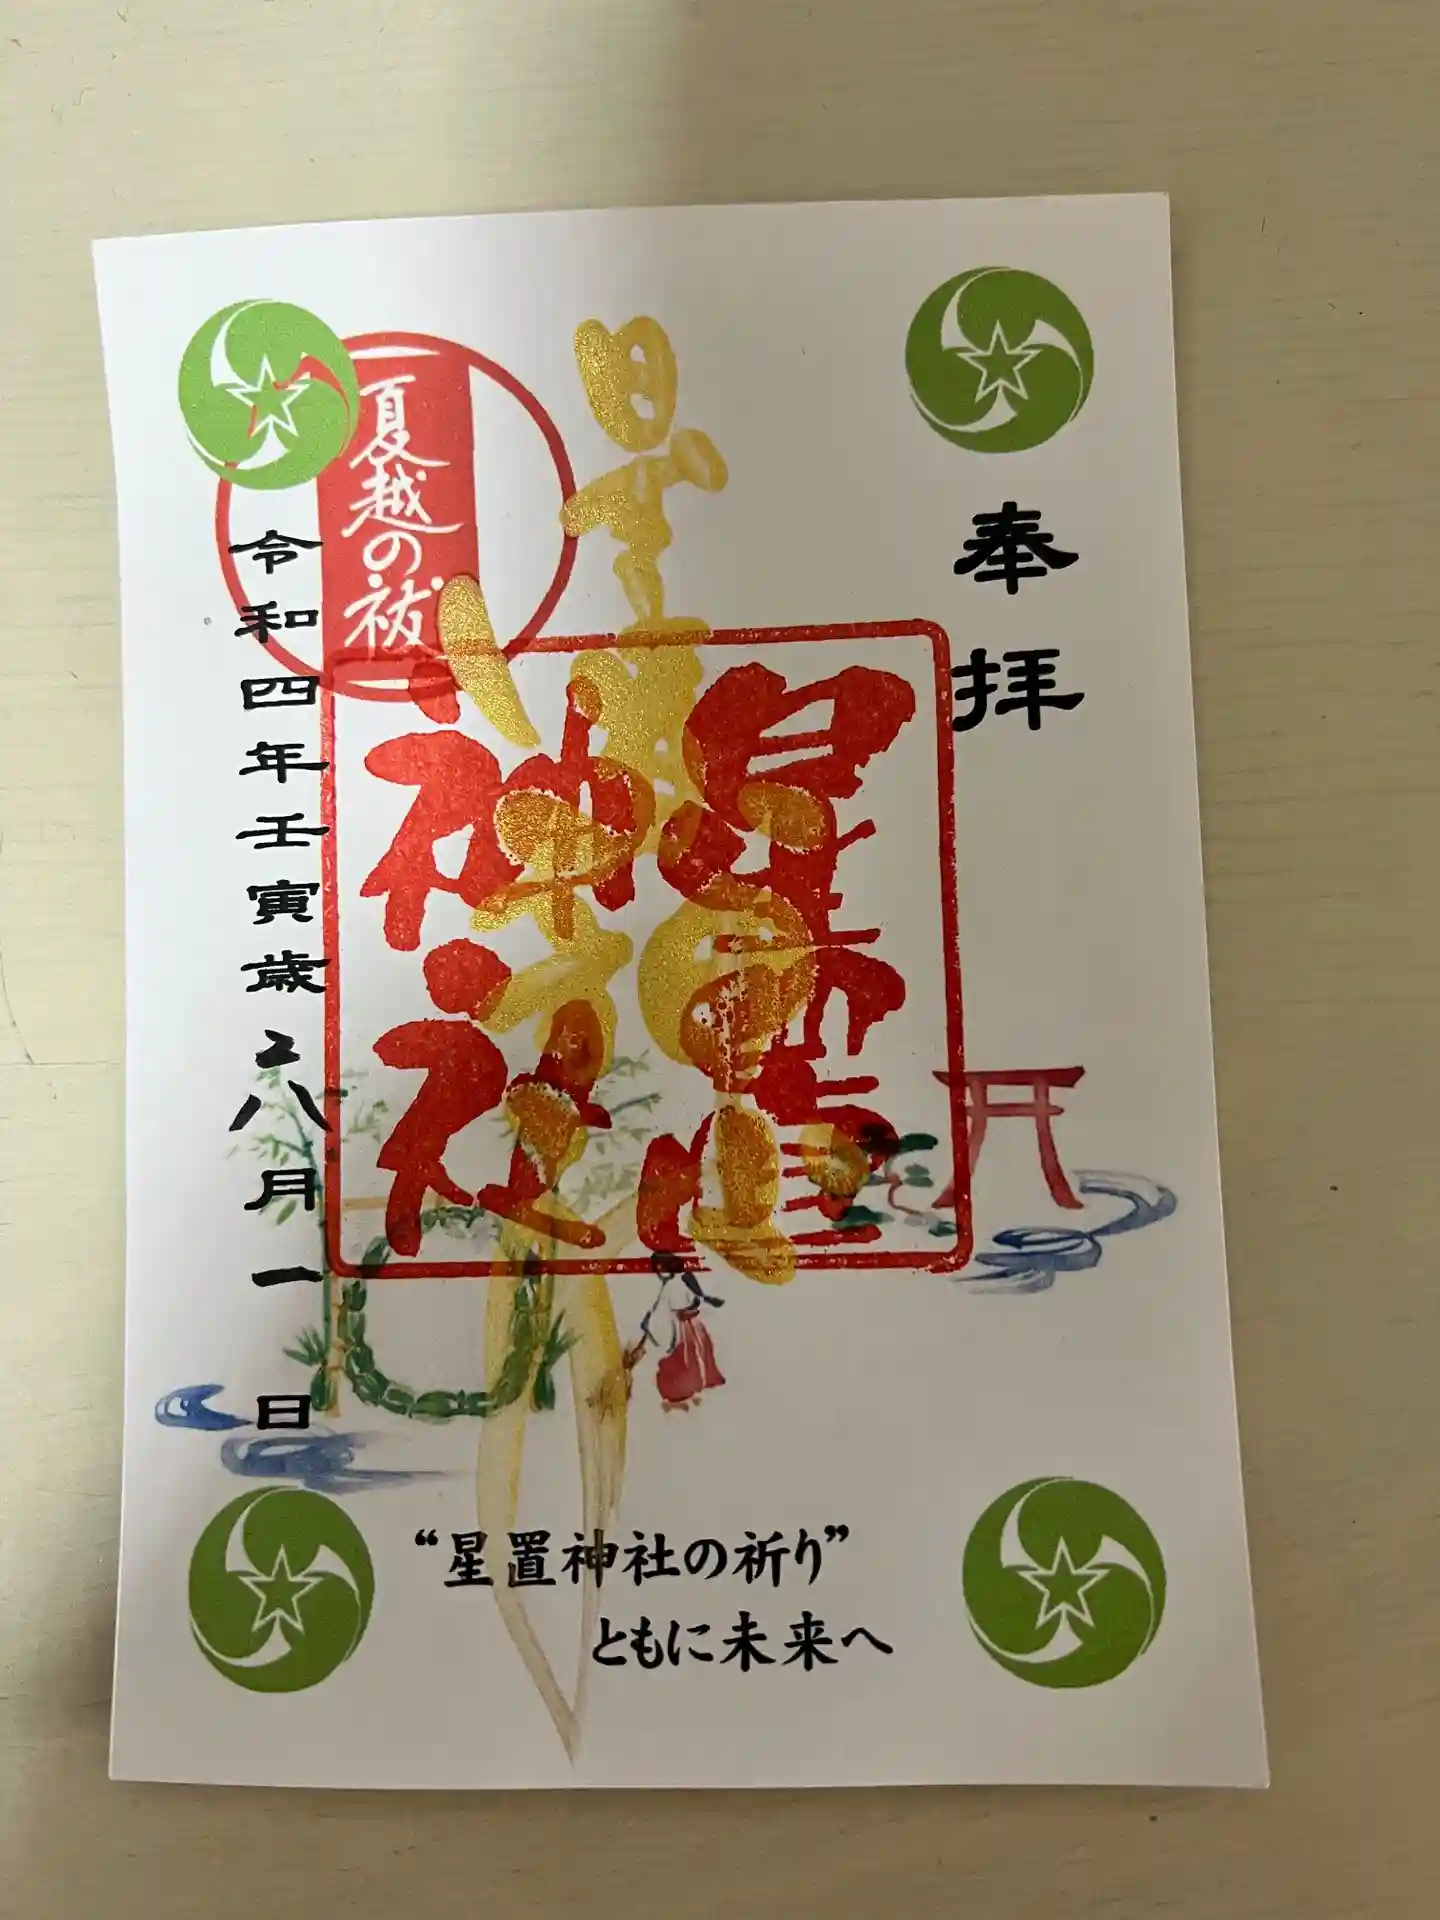 奉拝
星置神社
星置神社
夏越の祓
令和四年壬寅歳 八月一日
“星置神社の祈り”
ともに未来へ